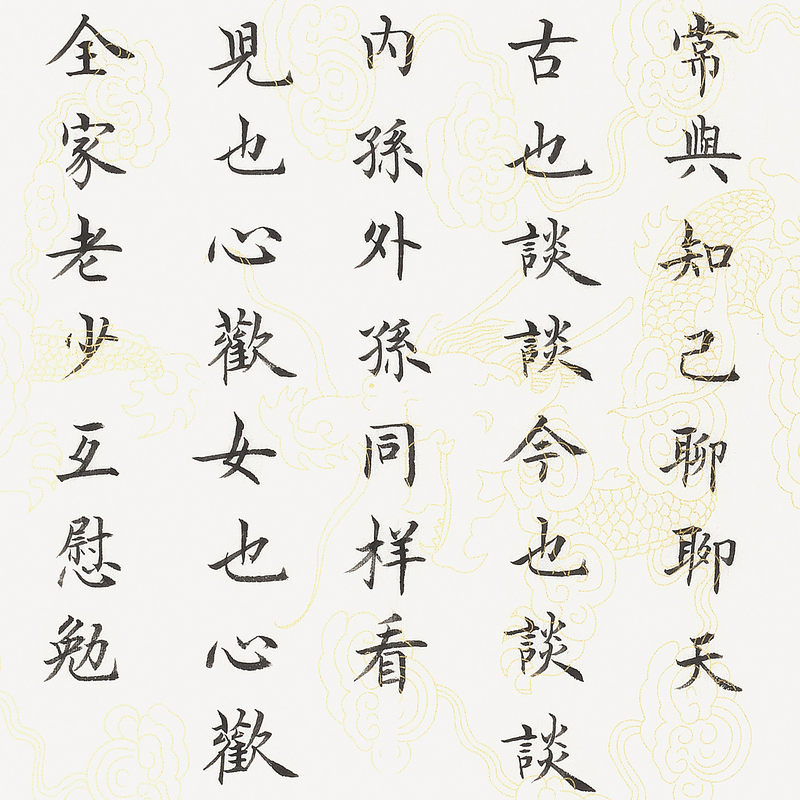 常與知己聊聊天
古也談談今也談談
內孫外孫同样看
児也心歡女也心歡
全家老少互慰勉